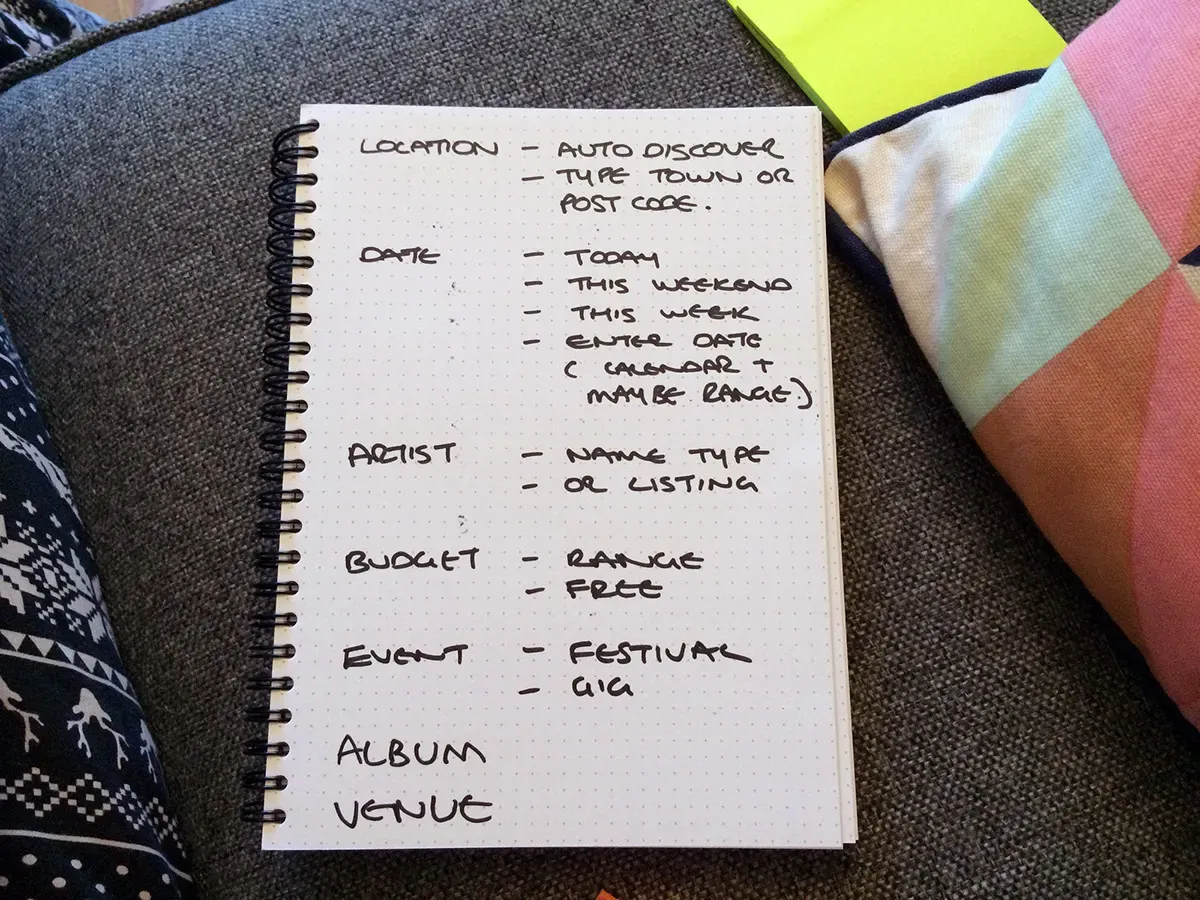 LOCATION - AUTO DISCOVER
- TYPE TOWN OR
POST CODE.
DATE - TODAY
- THIS WEEKEND
- THIS WEEK
- ENTER DATE
( CALENDAR +
MAYBE RANGE.)
ARTIST - NAME TYPE
- OR LISTING
BUDGET - RANGE
- FREE
EVENT - FESTIVAL
- GIG
ALBUM
VENUE